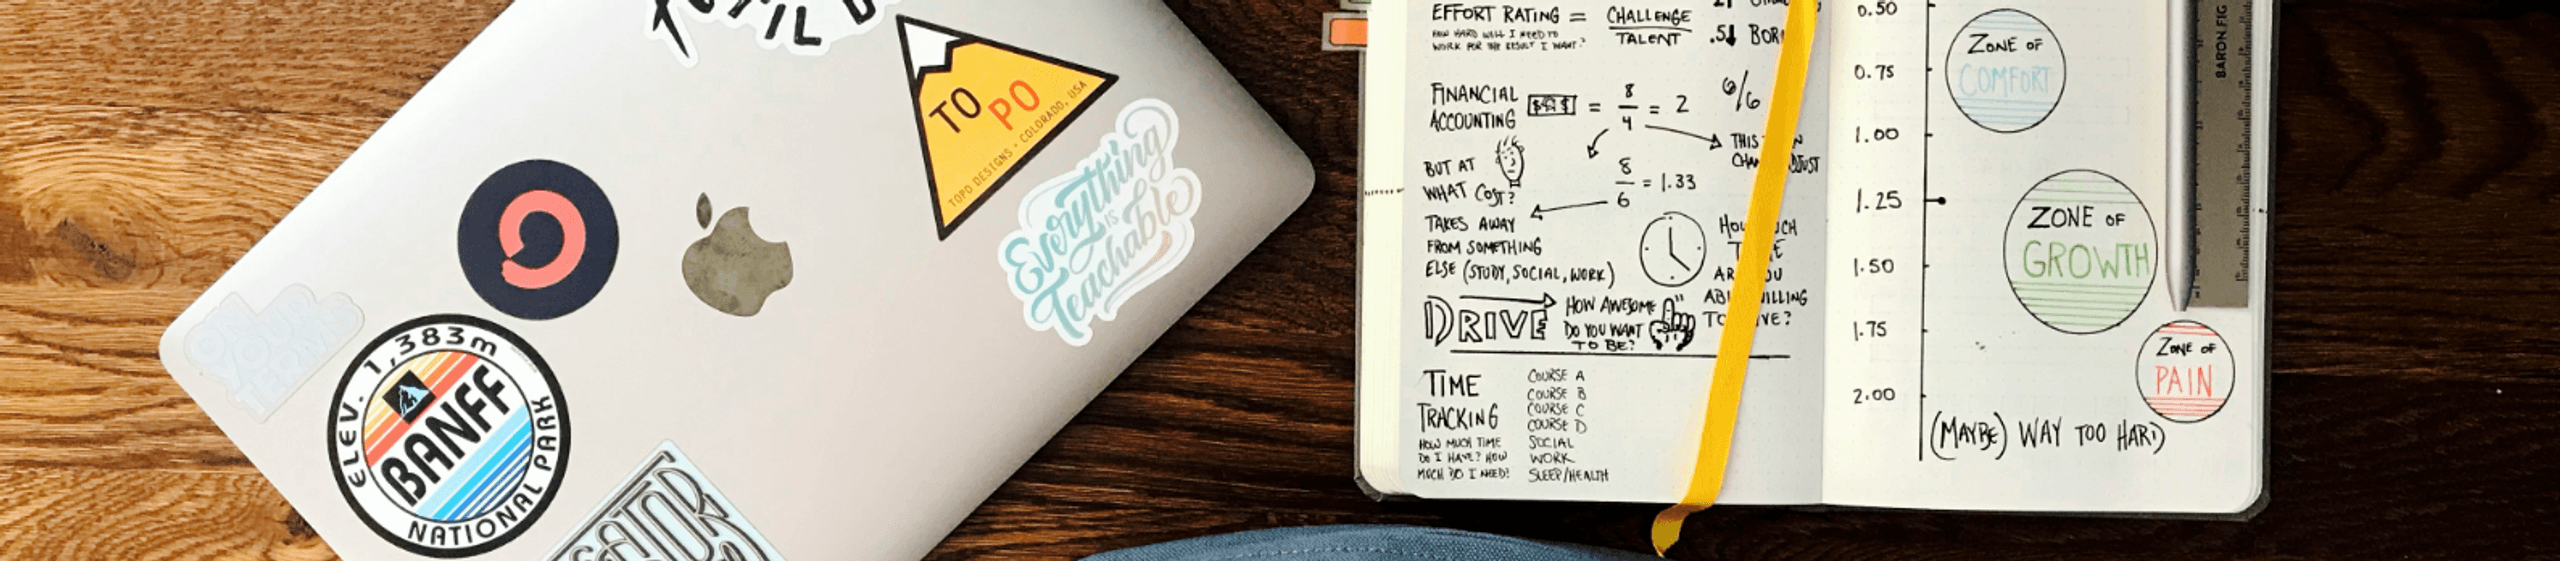 TO PO
TOPO DESIGNS - COLORADO, USA
Everything
is
Teachable
ON
YOUR
TERMS
ELEV. 1,383m
BANFF
NATIONAL PARK
EFFORT RATING = CHALLENGE
TALENT
HOW HARD WILL I NEED TO
WORK FOR THE RESULT I WANT?
.5
FINANCIAL
ACCOUNTING
= 8/4 = 2
6/6
THIS
BUT AT
WHAT COST?
8/6 = 1.33
TAKES AWAY
FROM SOMETHING
ELSE (STUDY, SOCIAL, WORK)
DRIVE
HOW AWESOME
DO YOU WANT
TO BE?
TIME
TRACKING
HOW MUCH TIME
DO I HAVE? HOW
MUCH DO I NEED?
COURSE A
COURSE B
COURSE C
COURSE D
SOCIAL
WORK
SLEEP/HEALTH
0.50
0.75
1.00
1.25
1.50
1.75
2.00
ZONE OF
COMFORT
ZONE OF
GROWTH
ZONE OF
PAIN
(MAYBE) WAY TOO HARD
BARON FIG